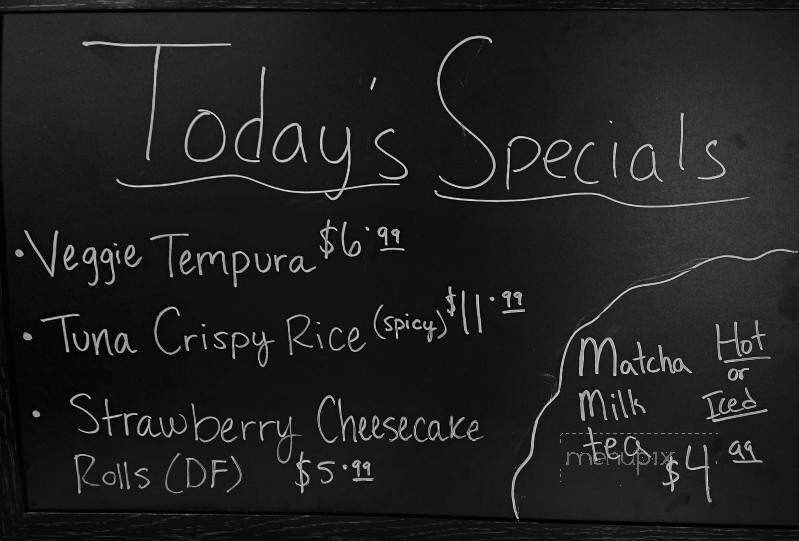 Today's Specials
• Veggie Tempura $6.99
• Tuna Crispy Rice (spicy) $11.99
• Strawberry Cheesecake
Rolls (DF) $5.99
Matcha Hot
or
Milk Iced
tea $4.99
menupix